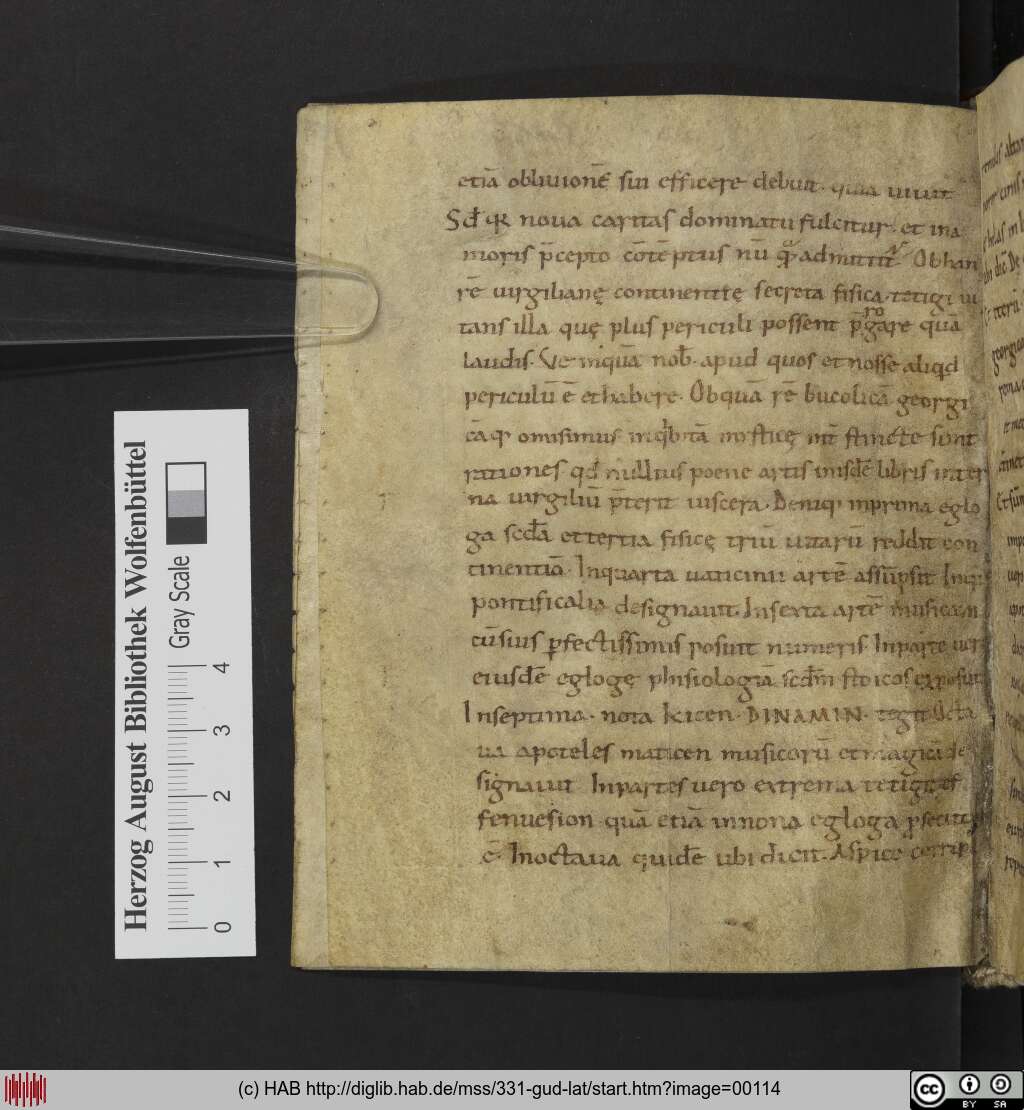 etiā obliuionē sui efficere debuit. quia uiuit
Sed qR noua caritas dominatu fulcitur. et ina
moris p̄cepto cōtē ptus nū quā admittit. Obhan
rē uirgilianę continentię secreta fisica. tetigi ui
tans illa quę plus periculi possent p̄rogare quā
laudis. Ve inquā nob̄. apud quos et nosse aliqd
periculū ē et habere. Obquā rē bucolicā georgi
cāq omisimus inqbtā misticę int stincte sunt
rationes qd nullius poene artis inisdē libris inter
na uirgiliū p̄terit uiscera. Deniq inprima eglo
ga scdā et tertia fisicę triū uitarū reddit con
tinentiā. Inquarta uaticinii artē assūpsit Inq
pontificalia designauit. Insexta artē musicam
cūsuis pfectissimis posuit numeris Inparte uero
eiusdē eglogę phisiologiā scdm stoicos exposuit
Inseptima. nota kicen. DINAMIN. tegit Octa
ua apoteles maticen musicorū et magicā de
signauit Inpartes uero extrema tetigit ef
fenuesion quā etiā innona egloga psecut
ē. Inoctaua quidē ubi dicit. Aspice corrip
Herzog August Bibliothek Wolfenbüttel
Gray Scale
0 1 2 3 4
(c) HAB http://diglib.hab.de/mss/331-gud-lat/start.htm?image=00114
cc BY SA